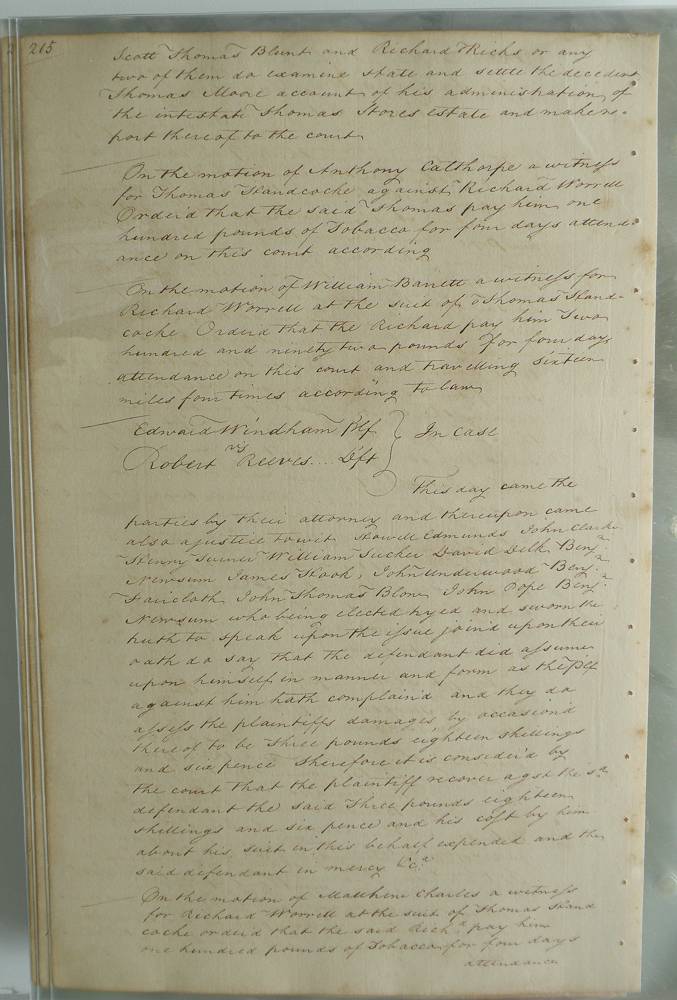 2 215
Scott Thomas Blunt and Richard Ricks or any
two of them do examine state and settle the decedent
Thomas Moore account of his administration of
the intestate Thomas Stores estate and make re-
port thereof to the court
On the motion of Anthony Calthorpe a witness
for Thomas Handcocke against Richard Worrell
Order'd that the said Thomas pay him one
hundred pounds of Tobacco for four days attend-
ance on this court according
On the motion of William Barett a witness for
Richard Worrell at the suit of Thomas Hand-
cocke Orderd that the Richard pay him Two
hundred and ninety two pounds for four days
attendance on this court and travelling sixteen
miles four times according to law
Edward Windham Plf } In Case
vs
Robert Reeves .... Dft
This day came the
parties by their attorney and thereupon came
also a justice to wit Howell Edmunds John Clarke
Henry Turner William Tucker David Delk Benja
Newsum James Hook, John Underwood Benja
Faircloth John Thomas Blow John Pope Benja
Newsum who being elected tryed and sworn the
truth to speak upon the issue join'd upon their
oath do say that the defendant did assume
upon himself in manner and form as the Plf
against him hath complain'd and they do
assess the plaintiffs damages by occasion'd
thereof to be Three pounds eighteen shillings
and six pence Therefore it is consider'd by
the court that the plaintiff recover agst the sd
defendant the said Three pounds eighteen
shillings and six pence and his cost by him
about his suit in this behalf expended and the
said defendant in mercy &ca
On the motion of Matthew Charles a witness
for Richard Worrell at the suit of Thomas Hand
cocke order'd that the said Richd pay him
one hundred pounds of Tobacco for four days
attendance